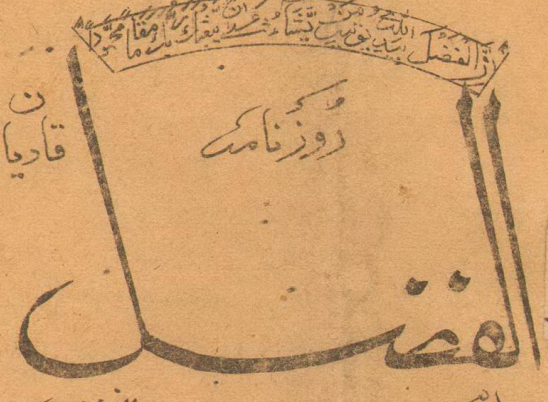 ان الفضل بید اللہ یؤتیہ من یشاء عسیٰ ان یبعثک ربک مقاما محمودا
روزنامہ
قادیان
الفضل